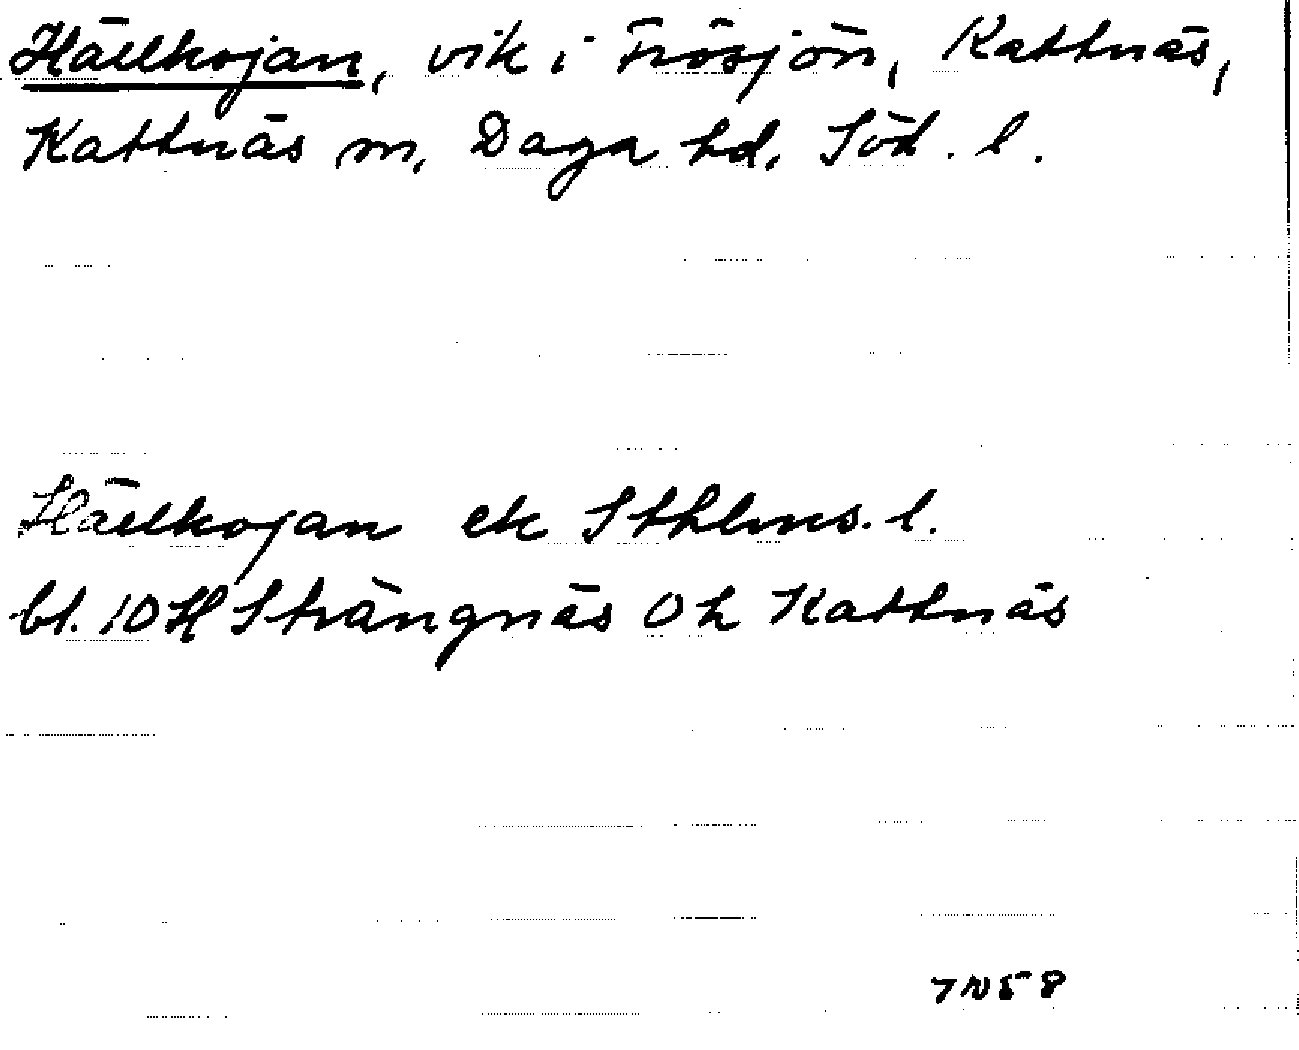 Hällkojan, vik i Frösjön, Kattnäs,
Kattnäs sn, Daga hd, Söd. l.
Hällkojan ek Sthlms. l.
bl. 10 H Strängnäs 0 h Kattnäs